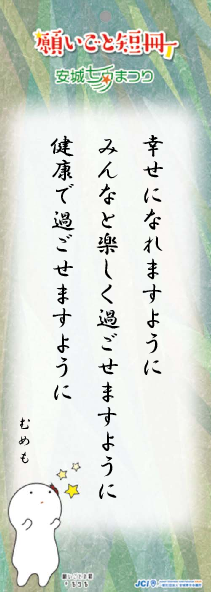 願いごと短冊
安城七夕まつり
幸せになれますように
みんなと楽しく過ごせますように
健康で過ごせますように
むめも
JCI